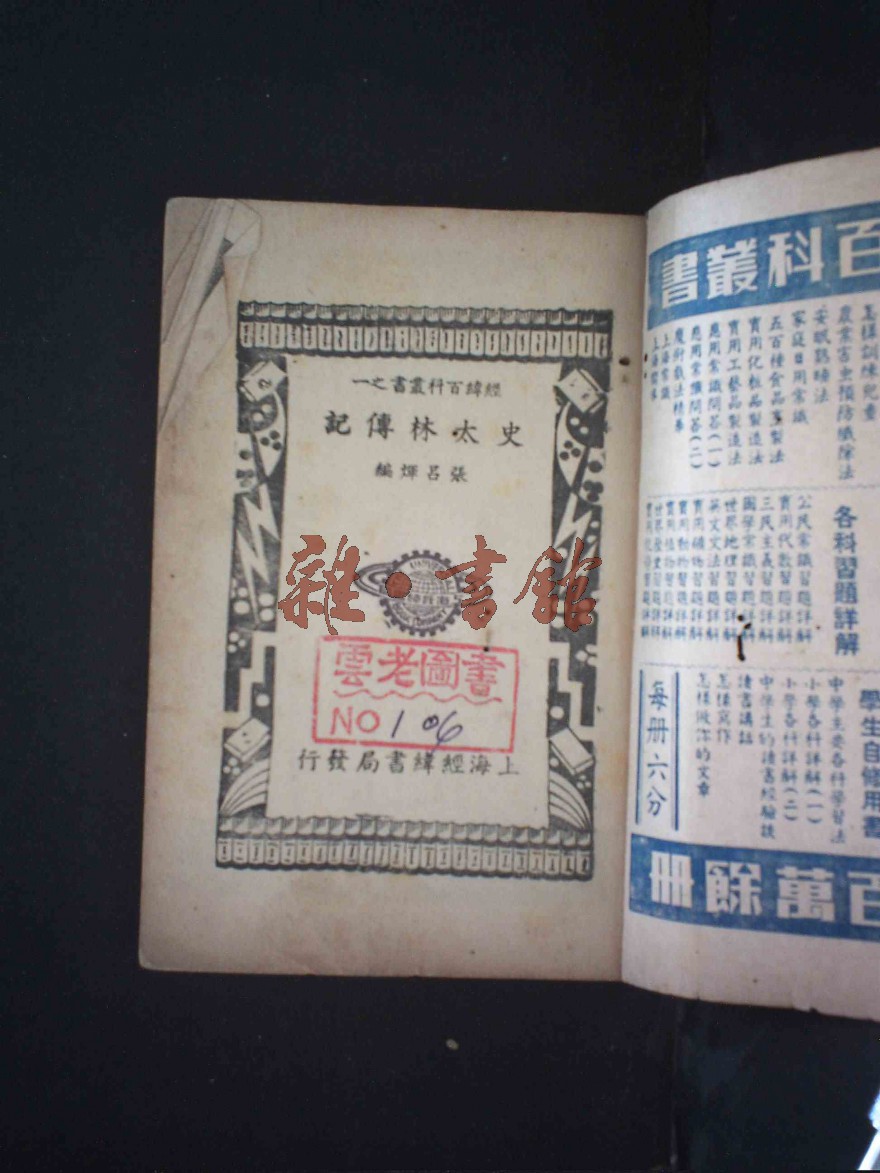 經緯百科叢書之一
史太林傳記
張呂煇編
雜·書館
雲老圖書
NO 106
上海經緯書局發行
百科叢書
怎樣訓練兒童
農業害虫預防殲除法
安眠熟睡法
家庭日用常識
五百種食品製法
實用化粧品製造法
實用工藝品製造法
應用常識問答(一)
應用常識問答(二)
魔術戲法精華
上海常識
各科習題詳解
公民常識習題詳解
實用代數習題詳解
三民主義習題詳解
國學常識習題詳解
世界地理習題詳解
英文文法習題詳解
實用礦物習題詳解
實用動物習題詳解
實用植物習題詳解
世界歷史習題詳解
學生自修用書
中學生要各科學習法
小學各科詳解(一)
小學各科詳解(二)
中學生的讀書經驗談
讀書講話
怎樣寫作
怎樣做你的文章
每册六分
百萬餘册